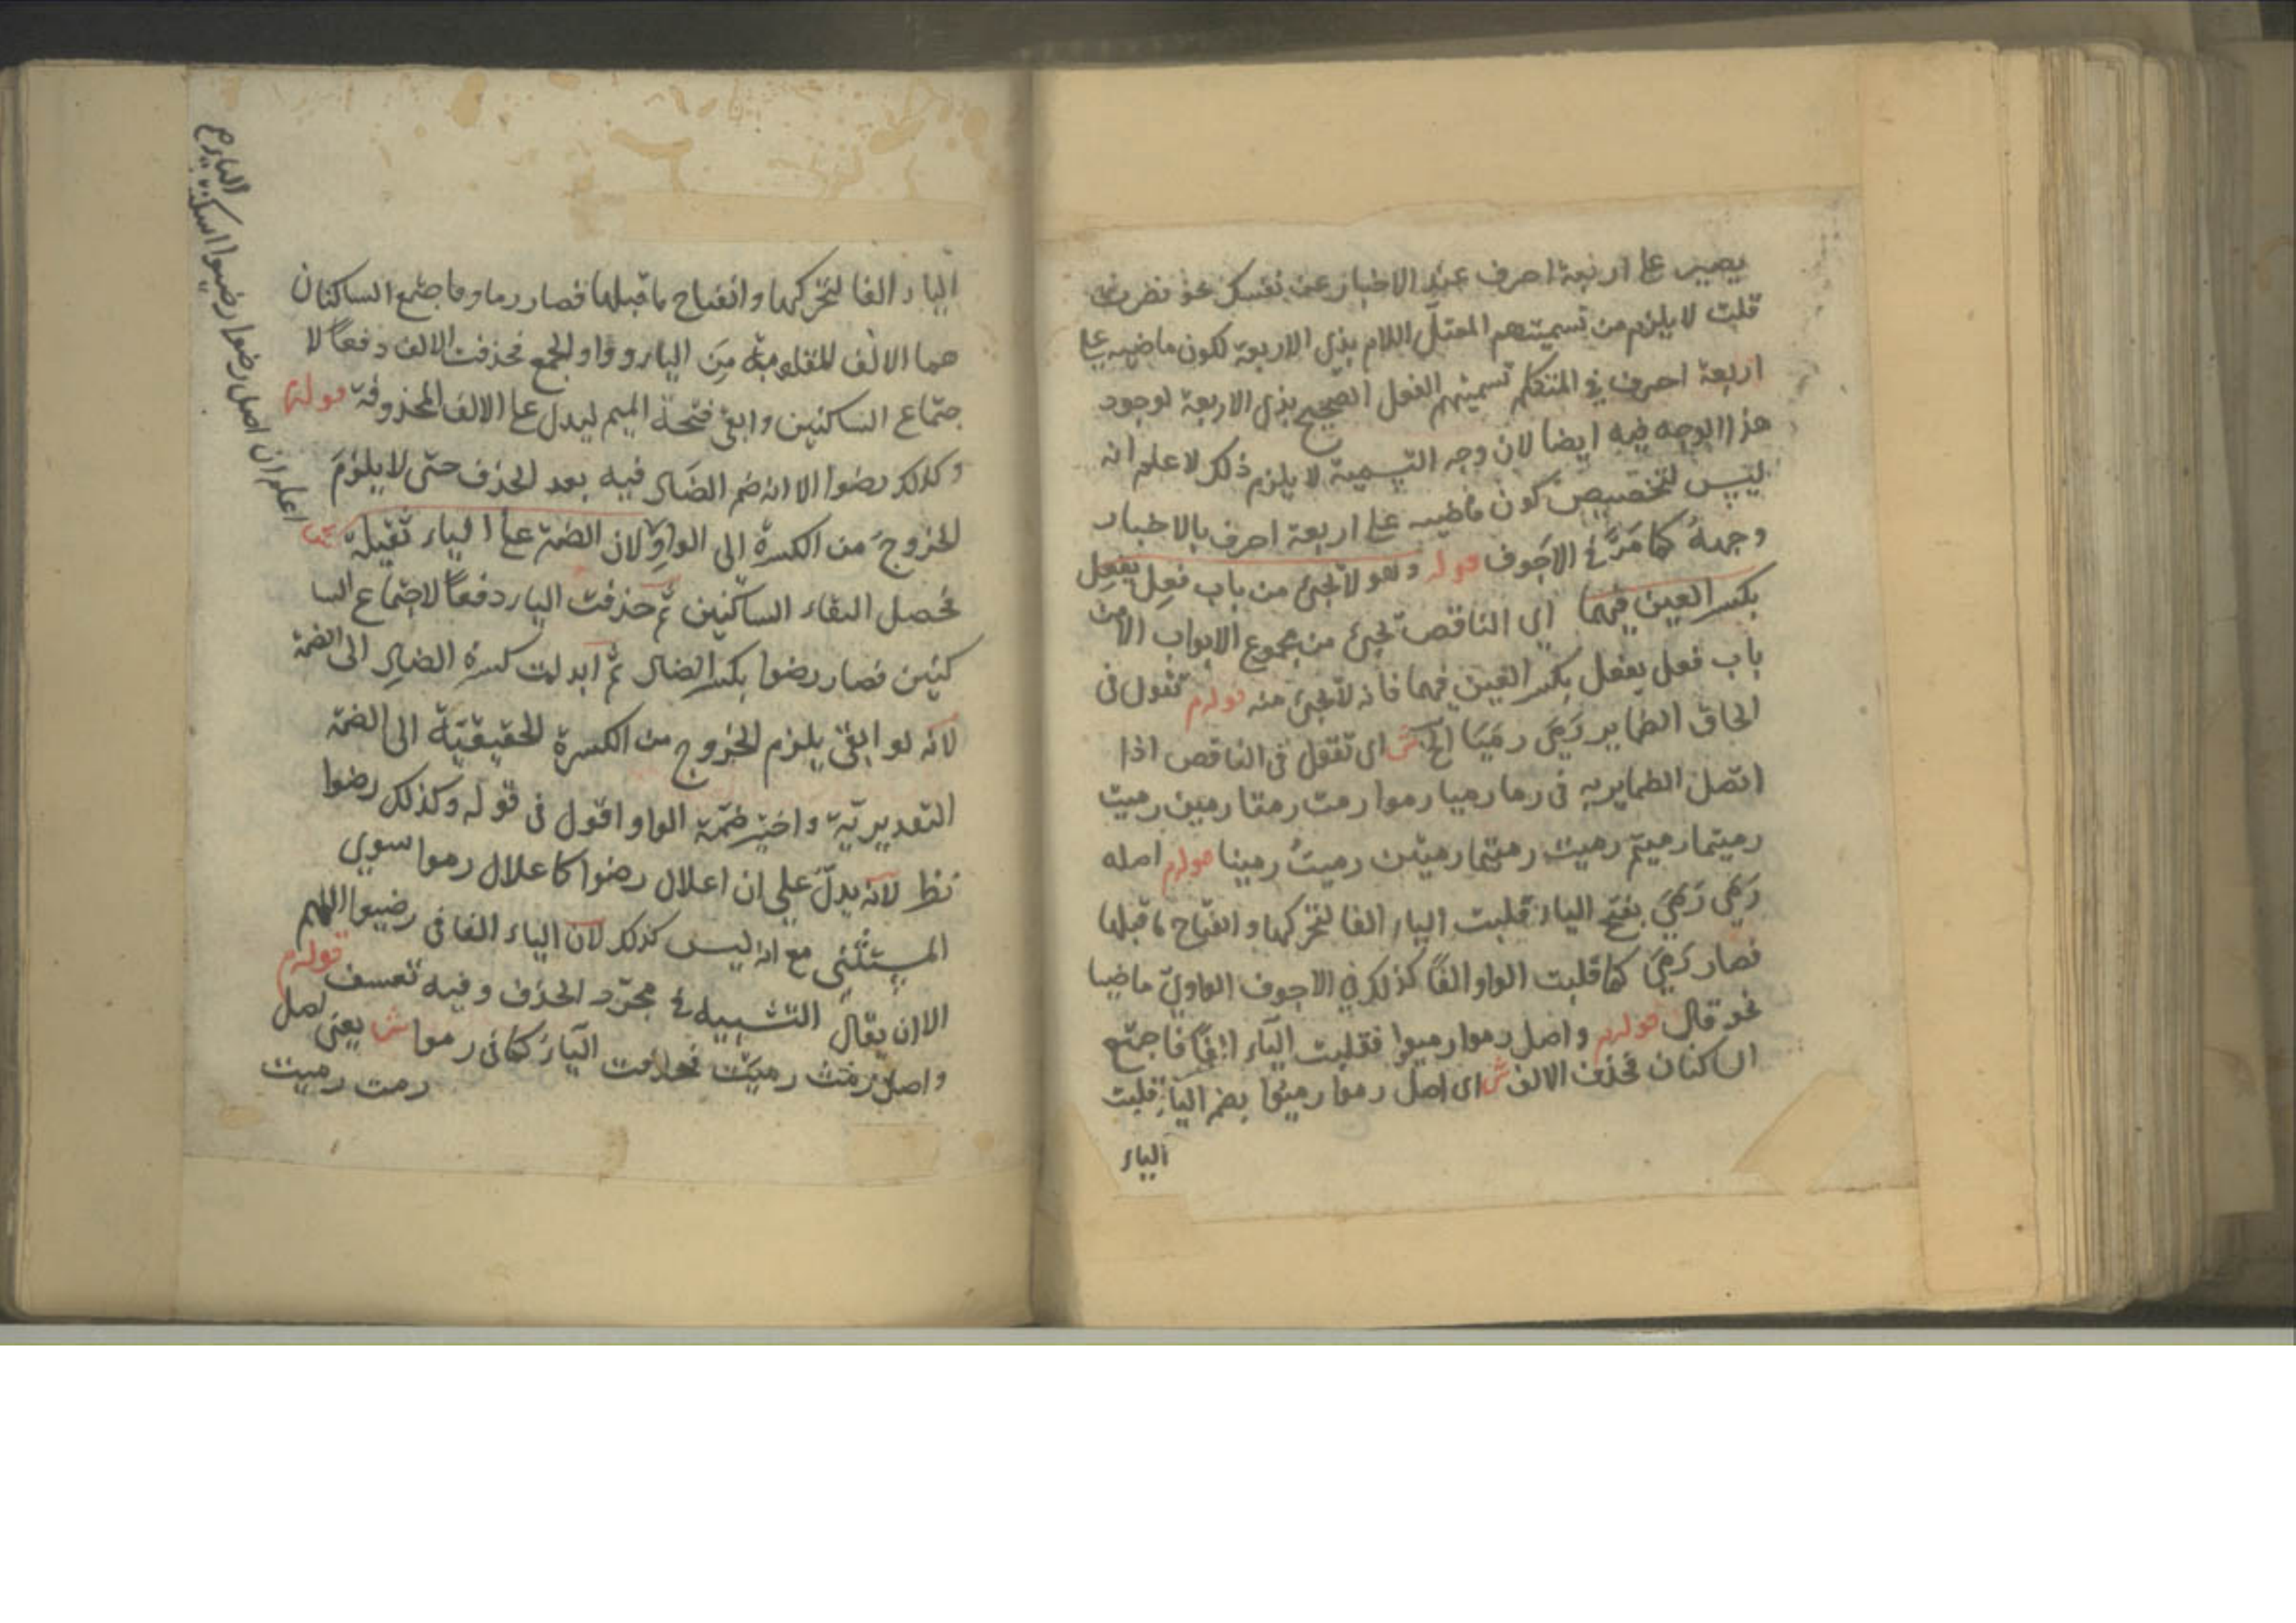 يصير على اربعة احرف عند الاخبار عن نفسك نحو ضربت
قلت لا يلزم من تسميتهم المعتل اللام بذى الاربعة لكون ماضيه على
اربعة احرف في المتكلم تسميتهم الفعل الصحيح بذى الاربعة لوجود
هذا الوجه فيه ايضا لان وجه التسمية لا يلزم ذلك لاعلم انه
ليس لتخصيص كون ماضيه على اربعة احرف بالاخبار
وجهة كما مر في الاجوف قوله وهو لا تجئ من باب فعل يفعل
بكسر العين فيهما اى الناقص تجئ من مجموع الابواب الا من
باب فعل يفعل بكسر العين فيهما فانه لا تجئ منه قوله تقول فى
الحاق الضماير رَمَى رميا الخ ش اى تقول فى الناقص اذا
اتصل الضماير به فى رما رميا رموا رمت رمتا رمين رميت
رميتما رميتم رميت رميتما رميتن رميتُ رمينا قوله اصله
رَمَى رَمَىَ بفتح الياء قلبت الياء الفا لتحركها وانفتاح ما قبلها
فصار رَمَى كما قلبت الواو الفًا كذلك فى الاجوف الواوىّ ماضيا
نحو قال قوله واصل رموا رميوا فقلبت الياء الفًا فاجتمع
الساكنان فحذف الالف ش اى اصل رموا رميوا بضم الياء قلبت
الياء
الياء الفا لتحركها وانفتاح ما قبلها فصار رماو فاجتمع الساكنان
هما الالف المقلوبة مِنَ الياء وواو الجمع فحذفت الالف دفعًا لا
جتماع الساكنين وابقى فتحة الميم ليدل على الالف المحذوفة قوله
وكذلك رضوا الا انه ضم الضاد فيه بعد الحذف حتى لا يلزمَ
الخروجَ من الكسرة الى الواو لان الضمة على الياء ثقيلة
فحصل التقاء الساكنين ثم حذفت الياء دفعًا لاجتماع السا
كنين فصار رضوا بكسر الضاد ثم ابدلت كسرة الضاد الى الضمة
لانه لو ابقى يلزم الخروج من الكسرة الحقيقيّة الى الضمة
التقديريّة واختير ضمّة الواو اقول فى قوله وكذلك رضوا
نظ لانه يدلّ على ان اعلال رضوا كاعلال رموا سوى
المستثنى مع انه ليس كذلك لان الياء الفا فى رضيوا اللهم
الا ان يقال التشبيه في مجرّد الحذف وفيه تعسف قوله
واصل رمت رميت فحذفت الياء كما فى رموا ش يعنى اصل
رمت رميت
اعلم ان اصل رضوا رضيوا اسكنت
الياء